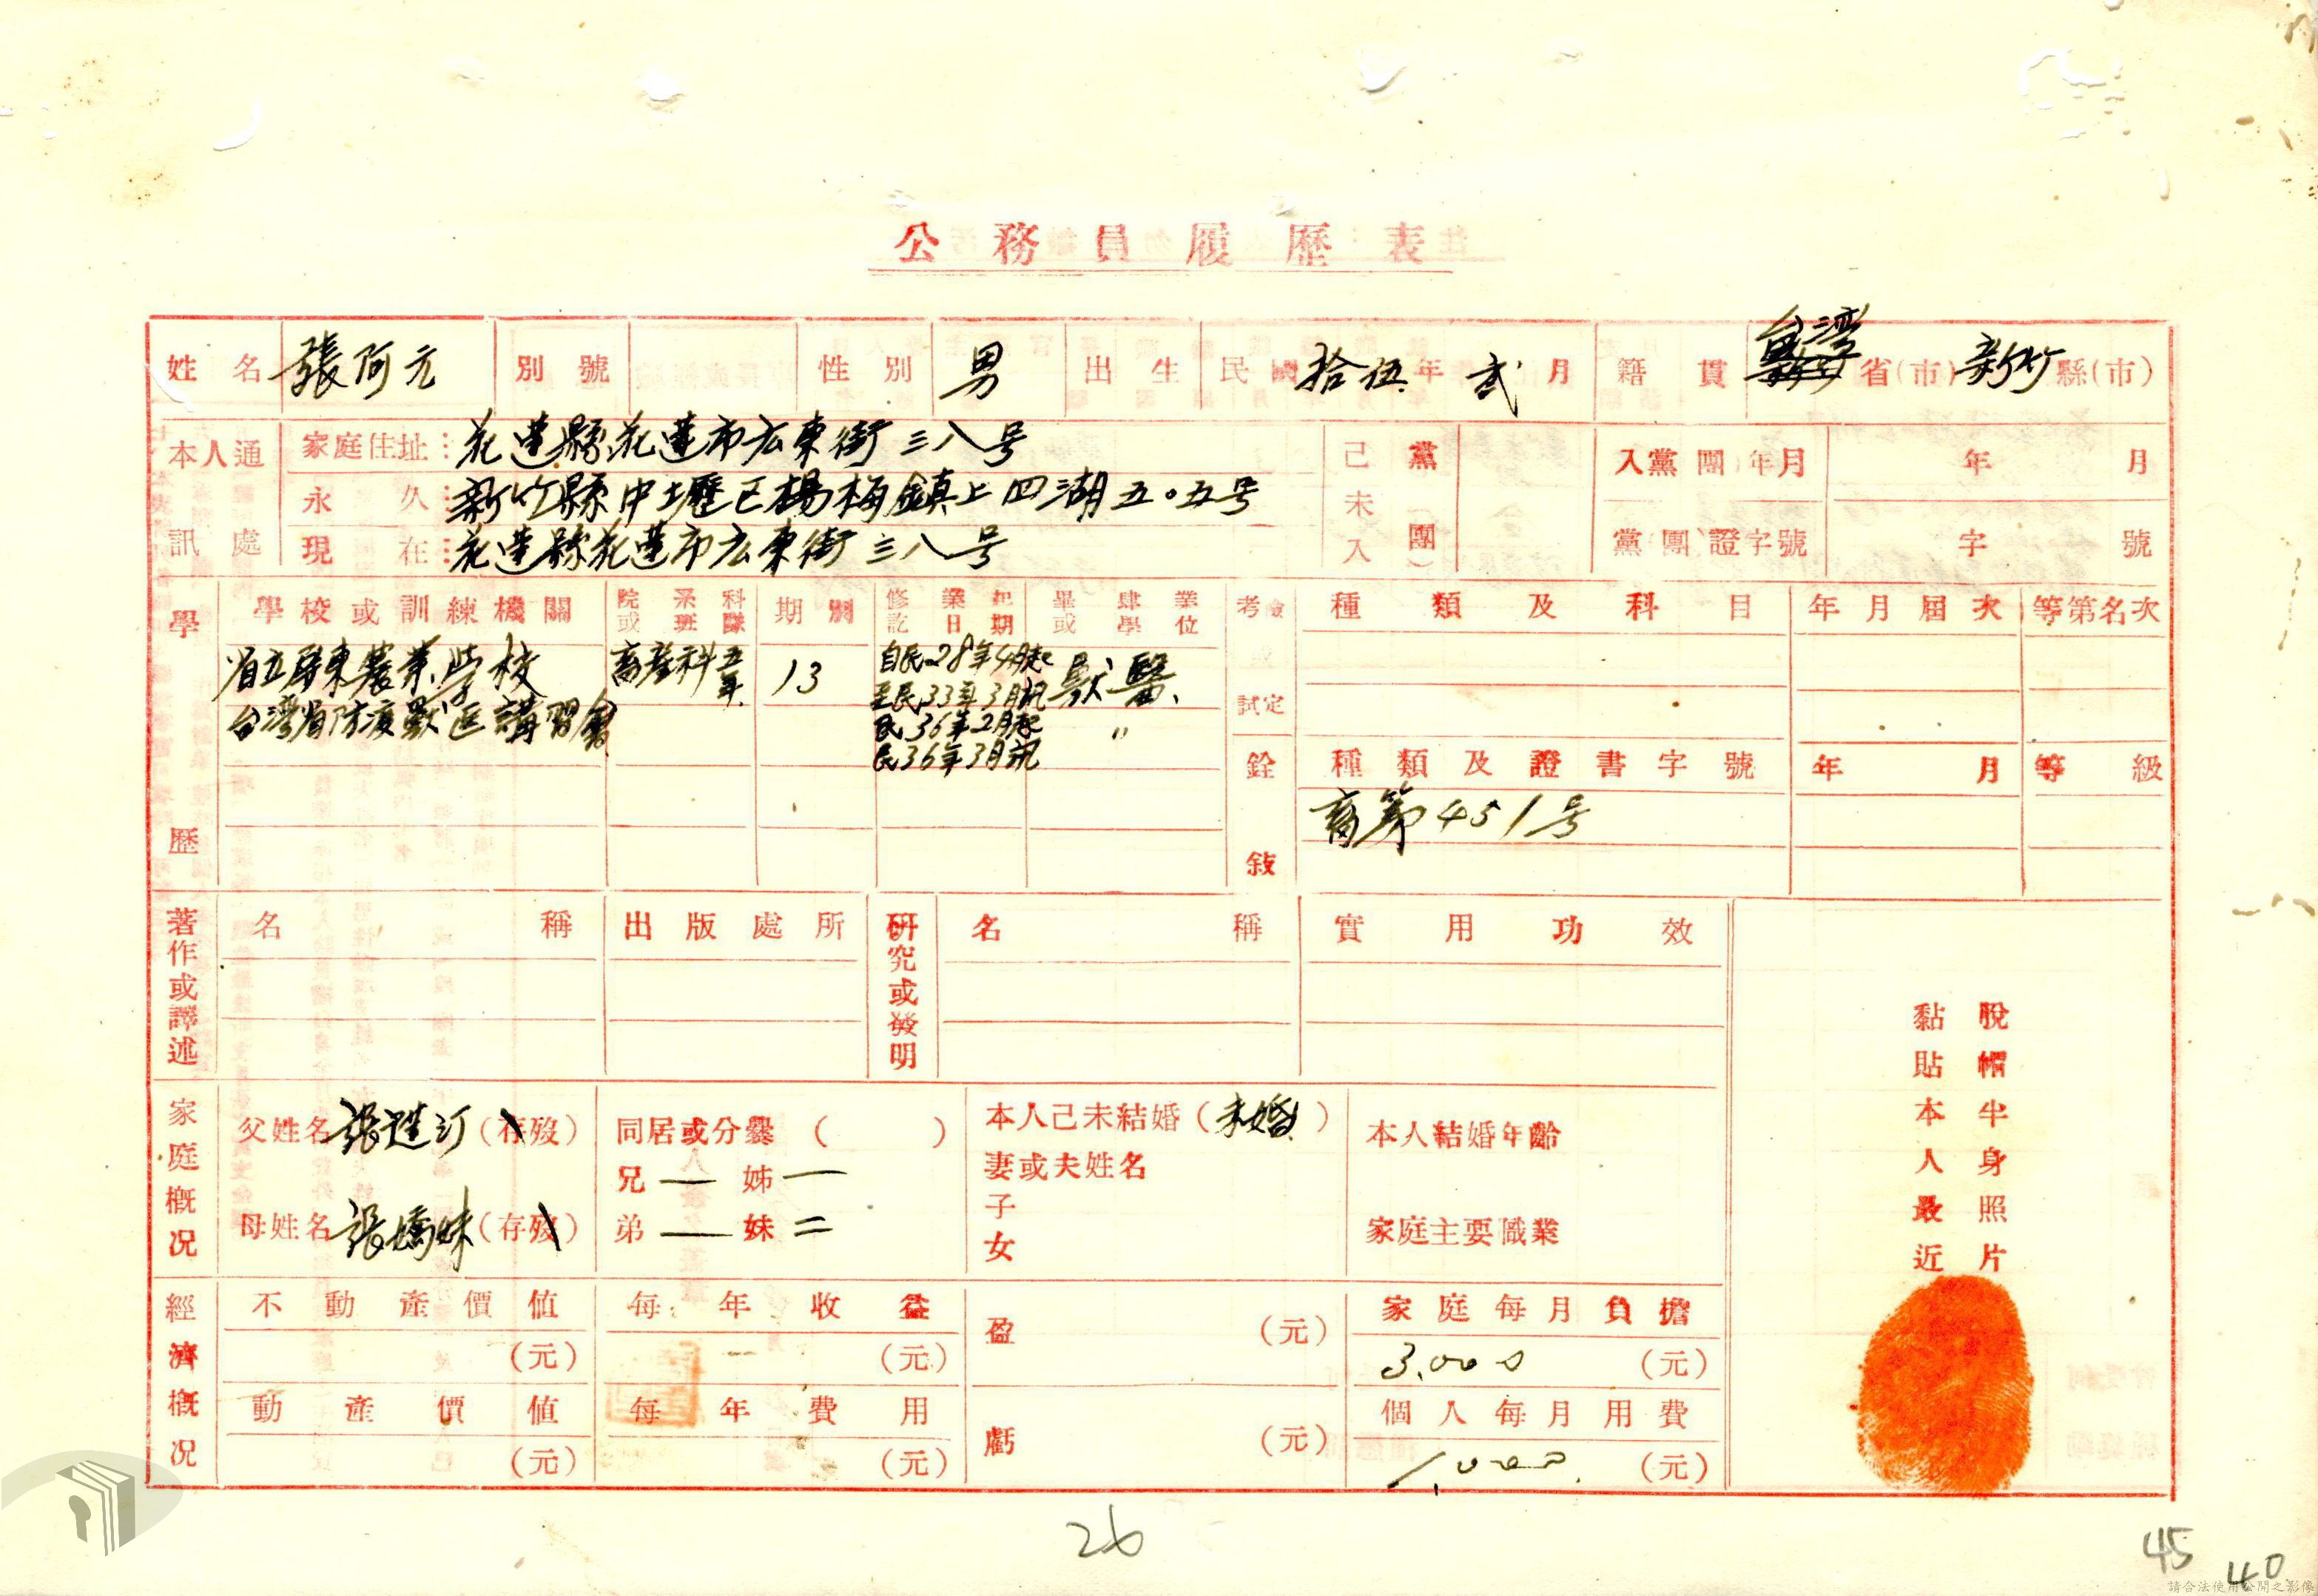 公務員履歷表
姓名 張阿元 別號 性別 男 出生 民國拾伍年貳月 籍貫 台灣省(市)新竹縣(市)
本人通訊處 家庭住址：花蓮縣花蓮市広東街三八号
永久：新竹縣中壢区楊梅鎮上四湖五〇五号
現在：花蓮縣花蓮市広東街三八号
己未入黨(團) 入黨團年月 年 月
黨(團)證字號 字 號
學歷 學校或訓練機關 院系科或班隊 期別 修業起訖日期 畢肄業或學位
省立屏東農業学校 畜產科五年 13 自民28年4月起 獸醫
至民33年3月訊
台灣省防疫獸医講習會 民36年2月起 〃
民36年3月訊
考試或檢定 種類及科目 年月屆次 等第名次
銓敍 種類及證書字號 年月 等級
畜第451号
著作或譯述 名稱 出版處所 研究或發明 名稱 實用功效
家庭概況 父姓名 張進汀 (存歿) 同居或分爨( ) 本人己未結婚(未婚) 本人結婚年齡
兄 一 姊 一 妻或夫姓名
母姓名 張嬌妹 (存歿) 弟 一 妹 二 子女 家庭主要職業
經濟概況 不動產價值 (元) 每年收益 (元) 盈 (元) 家庭每月負擔 3,000 (元)
動產價值 (元) 每年費用 (元) 虧 (元) 個人每月用費 1,000 (元)
脫帽半身照片
黏貼本人最近
26
45
40
請合法使用公開之影像